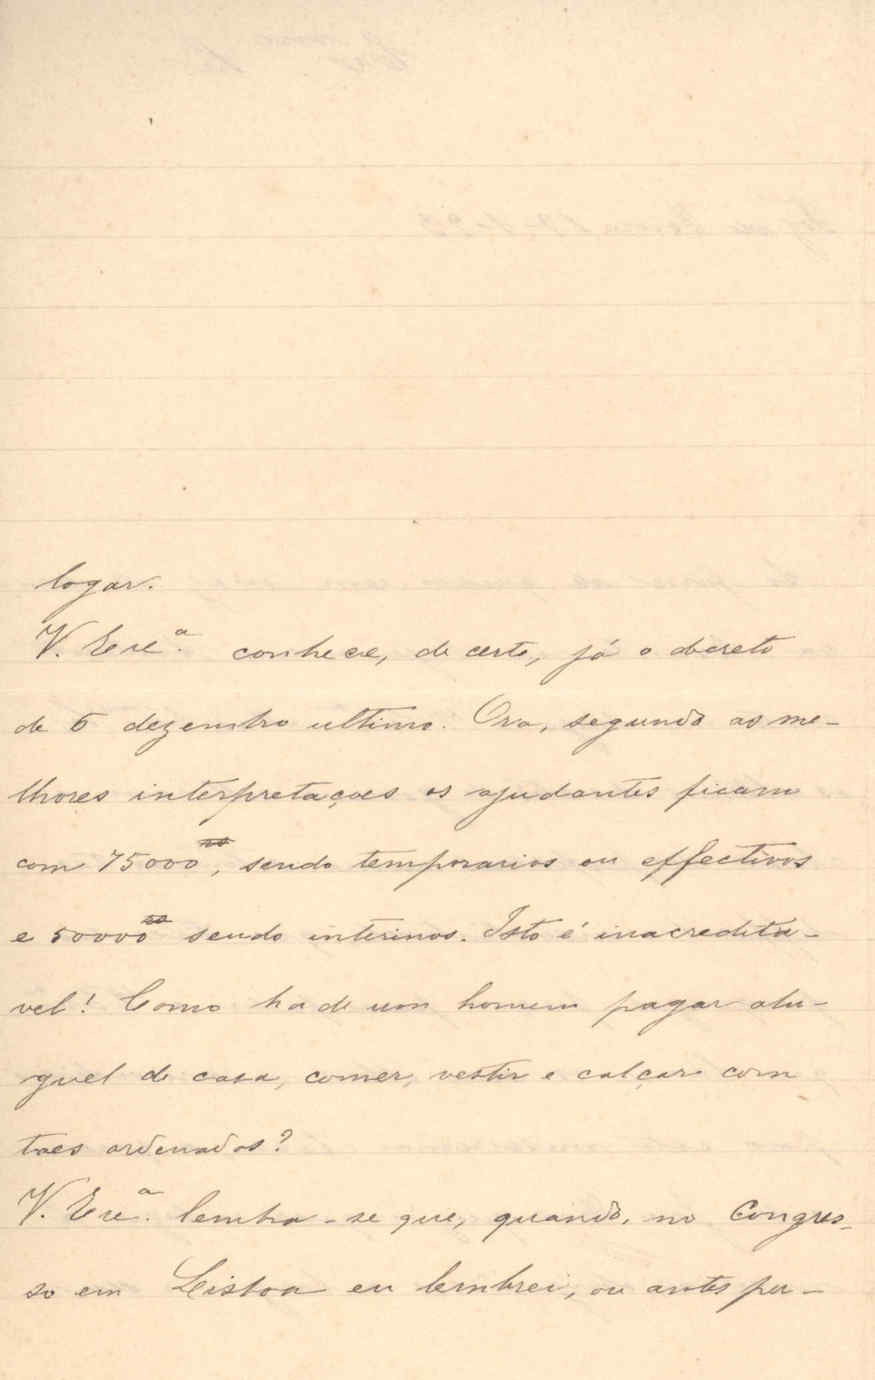 logar.
V. Exc.ª conhece, de certo, já o decreto
de 6 dezembro ultimo. Ora, segundo as me-
lhores interpretaçoes os ajudantes ficam
com 75000rs, sendo temporarios ou effectivos
e 50000rs sendo interinos. Isto é inacredita-
vel! Como ha de um homem pagar alu-
guel de casa, comer, vestir e calçar com
taes ordenados?
V. Exc.ª lembra-se que, quando, no Congres-
so em Lisboa eu lembrei, ou antes per-